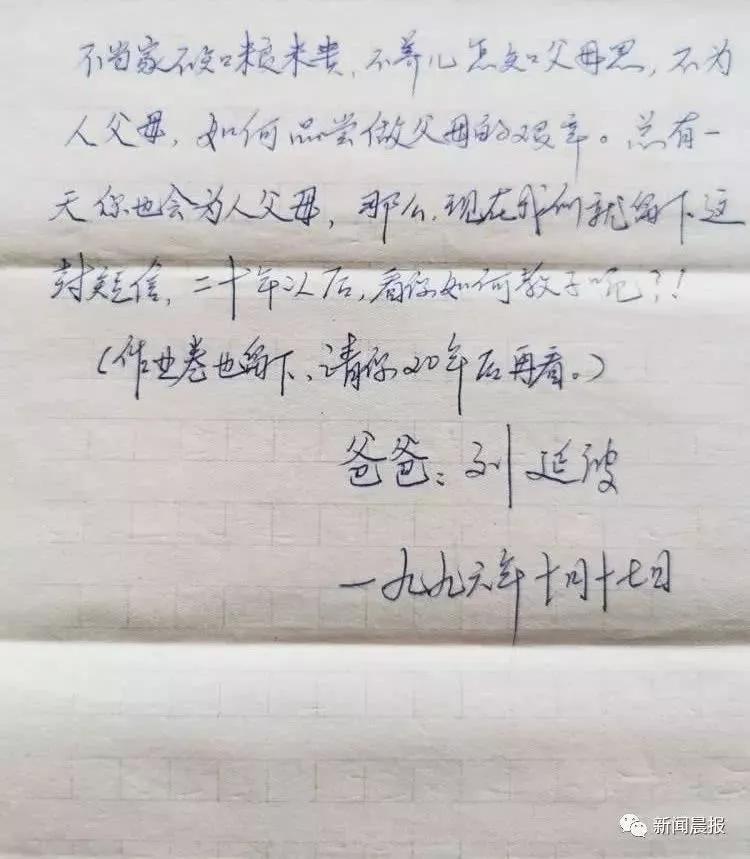 不当家不知粮米贵,不养儿怎知父母恩,不为
人父母,如何品尝做父母的艰辛。总有一
天你也会为人父母,那么,现在我们就留下这
封短信,二十年以后,看你如何教子呢?!
(作业卷也留下、请你20年后再看。)
爸爸:刘延波
一九九六年十月十七日
新闻晨报